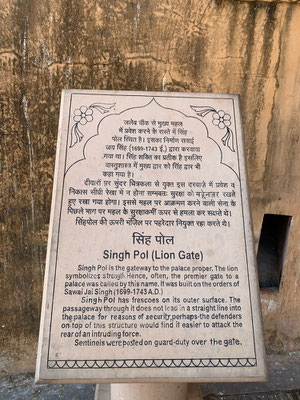 जलेब चौक से मुख्य महल
में प्रवेश करने के रास्ते में सिंह
पोल स्थित है। इसका निर्माण सवाई
जय सिंह (1699-1743 ई.) द्वारा करवाया
गया था। सिंह शक्ति का प्रतीक है इसलिए
वास्तुशास्त्र में मुख्य द्वार को सिंह द्वार भी
कहा गया है।
दीवारों पर सुंदर चित्रकला से युक्त इस दरवाजे में प्रवेश व
निकास सीधी रेखा में न होना सम्भवतः सुरक्षा को मद्देनज़र रखते
हुए रखा गया होगा। इससे महल पर आक्रमण करने वाली सेना के
पिछले भाग पर महल के सुरक्षाकर्मी ऊपर से हमला कर सकते थे।
सिंहपोल की ऊपरी मंजिल पर पहरेदार नियुक्त रहा करते थे।
सिंह पोल
Singh Pol (Lion Gate)
Singh Pol is the gateway to the palace proper. The lion
symbolizes strength. Hence, often, the premier gate to a
palace was called by this name. It was built on the orders of
Sawai Jai Singh (1699-1743 A.D.)
Singh Pol has frescoes on its outer surface. The
passageway through it does not lead in a straight line into
the palace for reasons of security, perhaps the defenders
on top of this structure would find it easier to attack the
rear of an intruding force.
Sentinels were posted on guard-duty over the gate.